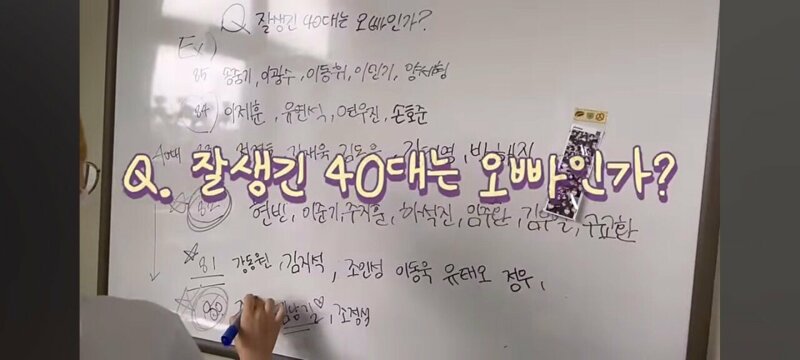 Q 잘생긴 40대는 오빠인가?
Ex)
85 송중기, 이광수, 이동휘, 이민기, 양세형
84 이제훈, 유연석, 연우진, 손호준
40대
Q. 잘생긴 40대는 오빠인가?
82 현빈, 이준기, 주지훈, 하석진, 임주환, 구교환
81 강동원, 김지석, 조인성 이동욱 유태오 정우,
김남길♡, 조정석